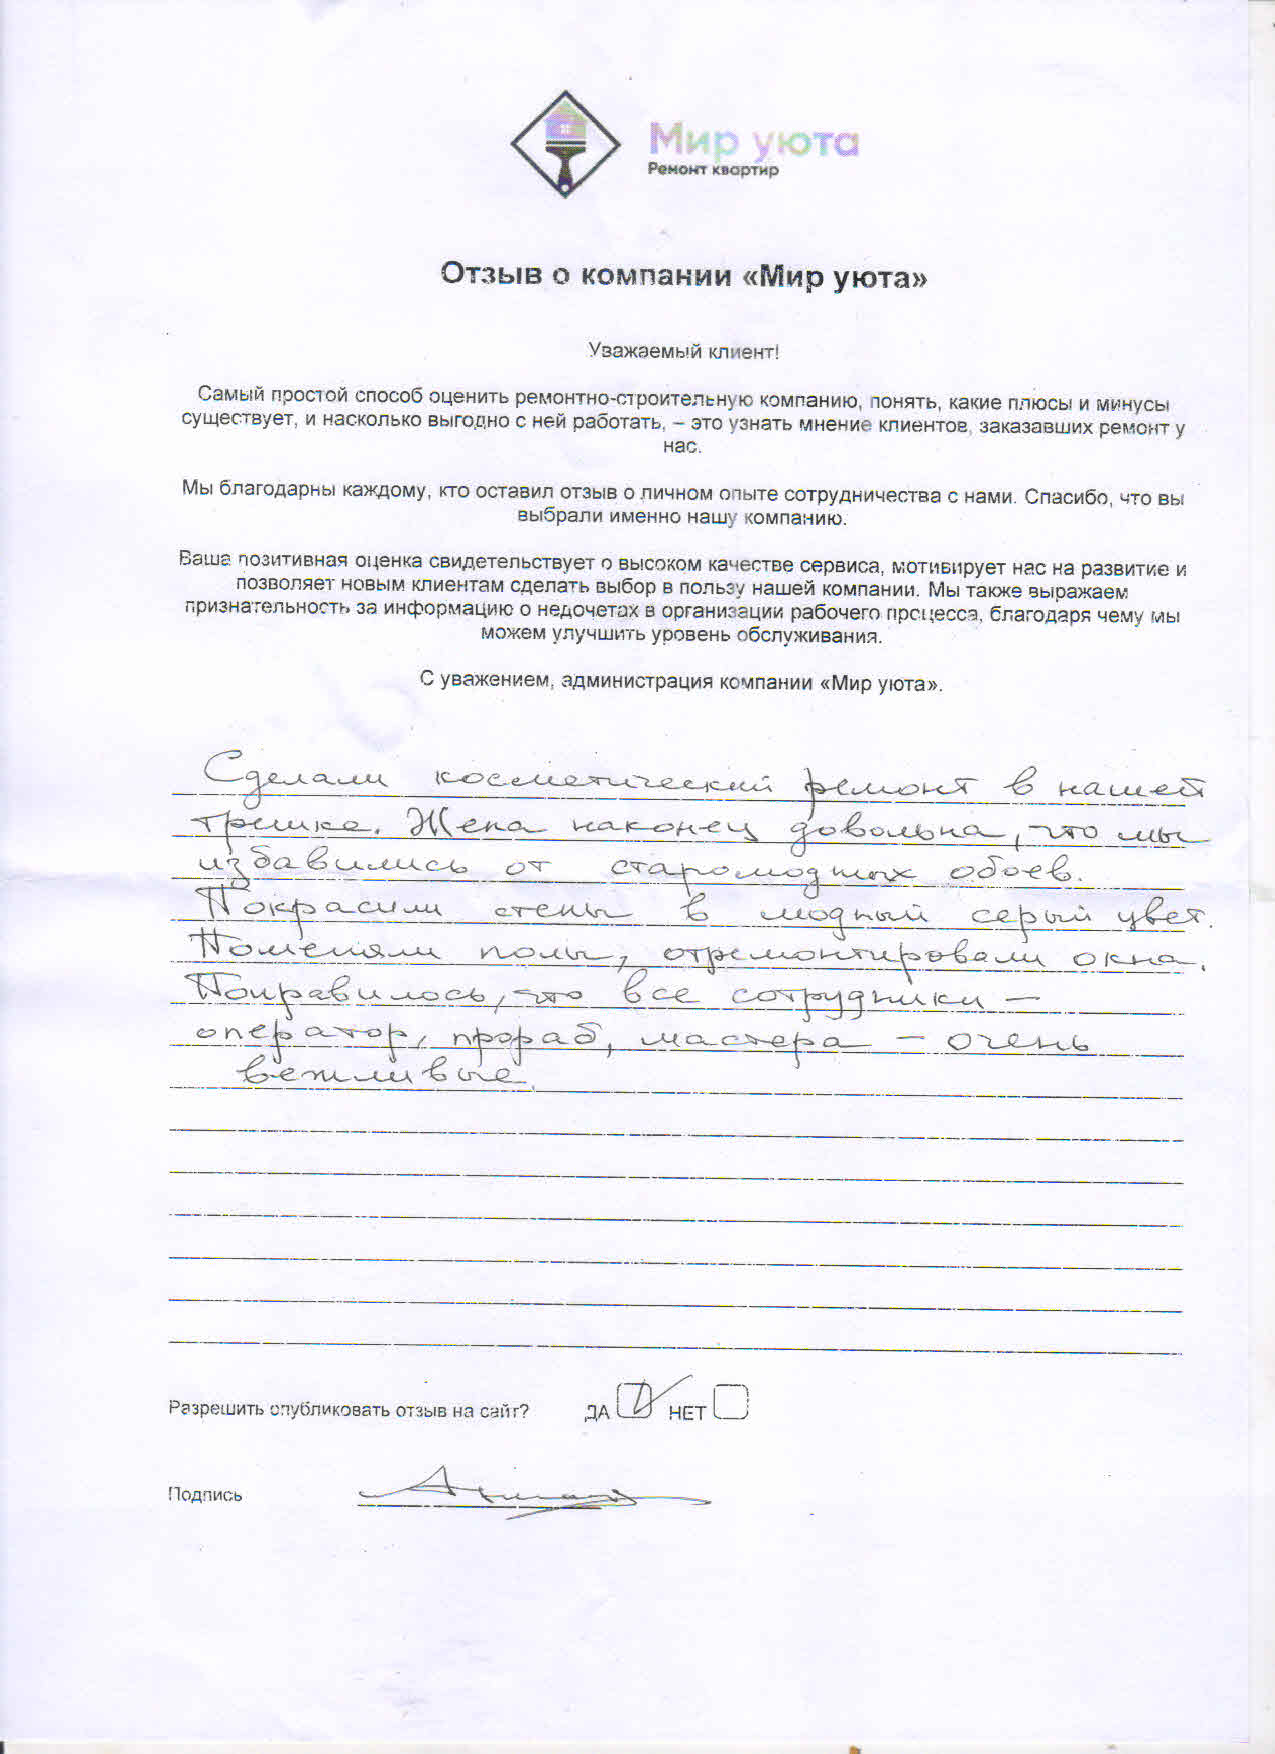 Мир уюта
Ремонт квартир
Отзыв о компании «Мир уюта»
Уважаемый клиент!
Самый простой способ оценить ремонтно-строительную компанию, понять, какие плюсы и минусы
существует, и насколько выгодно с ней работать, – это узнать мнение клиентов, заказавших ремонт у
нас.
Мы благодарны каждому, кто оставил отзыв о личном опыте сотрудничества с нами. Спасибо, что вы
выбрали именно нашу компанию.
Ваша позитивная оценка свидетельствует о высоком качестве сервиса, мотивирует нас на развитие и
позволяет новым клиентам сделать выбор в пользу нашей компании. Мы также выражаем
признательность за информацию о недочетах в организации рабочего процесса, благодаря чему мы
можем улучшить уровень обслуживания.
С уважением, администрация компании «Мир уюта».
Сделали косметический ремонт в нашей
трешке. Жена наконец довольна, что мы
избавились от старомодных обоев.
Покрасили стены в модный серый цвет.
Поменяли полы, отремонтировали окна.
Понравилось, что все сотрудники –
оператор, прораб, мастера – очень
вежливые.
Разрешить опубликовать отзыв на сайт? ДА НЕТ
Подпись